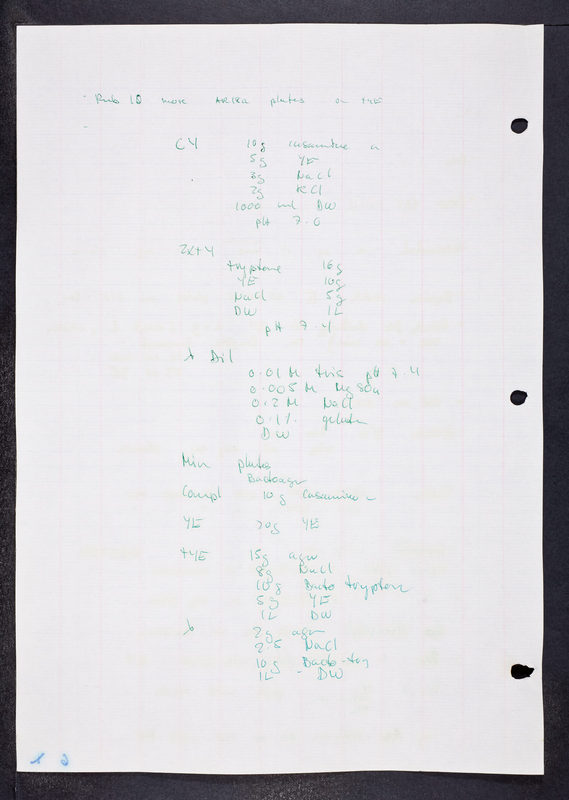 10 more plates on TYE
CY 10g casamino a
5g YE
3g NaCl
2g KCl
1000 ml DW
pH 7.0
2xtY
tryptone 16g
YE 10g
NaCl 5g
DW 1L
pH 7.4
λ Dil
0.01 M tris pH 7.4
0.005 M MgSO4
0.2 M NaCl
0.1% gelatin
DW
Min plates
Bactoagar
Compl 10g Casamino a
YE 20g YE
tYE 15g agar
8g NaCl
10g Bacto tryptone
5g YE
1L DW
λ 2g agar
2.5 NaCl
10g Bacto-try
1L - DW